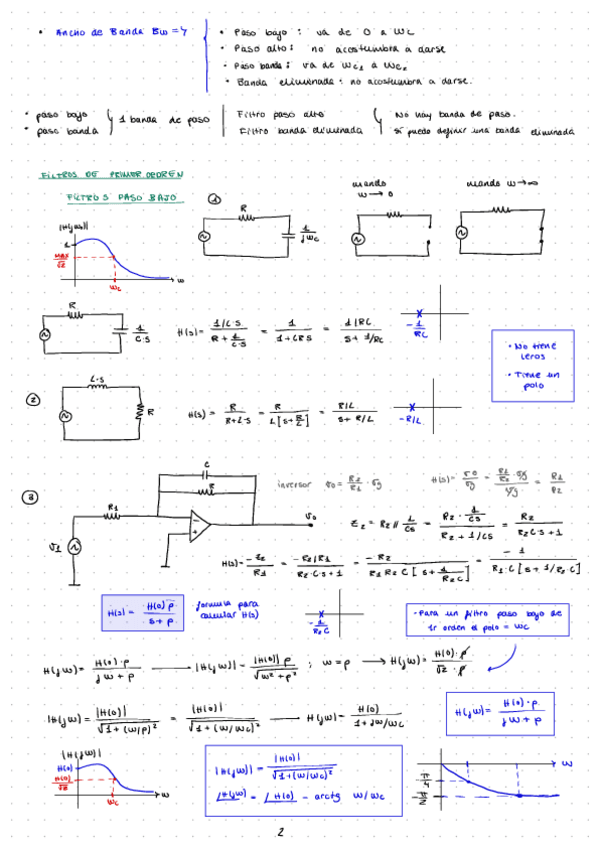 • Ancho de Banda BW =>
• Paso bajo: va de 0 a wc
• Paso alto: no acostumbra a darse
• Paso banda: va de wc1 a wc2
• Banda eliminada: no acostumbra a darse.
• paso bajo
• paso banda
1 banda de paso
Filtro paso alto
Filtro banda eliminada
No hay banda de paso.
Sí puedo definir una banda eliminada
FILTROS DE PRIMER ORDREN
FILTROS PASO BAJO
①
R
1/jwc
cuando w→0
cuando w→∞
|H(jw)|
1
MAX/√2
wc
w
R
1/C·S
H(s)= (1/C·S)/(R + 1/C·S) = 1/(1+CRS) = (1/RC)/(S+1/RC)
-1/RC
• No tiene ceros
• Tiene un polo
②
L·S
R
H(s) = R/(R+L·S) = R/(L[S+R/L]) = (R/L)/(S+R/L)
-R/L
③
C
R
R1
V1
Vo
inversor
H(s)=
Z2 = R2 // 1/CS = (R2 · 1/CS)/(R2 + 1/CS) = R2/(R2CS+1)
H(s)= -Z2/R1 = (-R2/R1)/(R2·C·S+1) = -R2/(R1R2C[S+1/R2C]) = -1/(R1·C[S+1/R2C])
H(s) = H(0)·p/(s+p)
formula para calcular H(s)
-1/R2C
• Para un filtro paso bajo de 1r orden el polo = wc
H(jw)= H(0)·p/(jw+p) → |H(jw)| = |H(0)|p/√(w²+p²) ; w=p → H(jw)= H(0)·p/(√2·p)
|H(jw)= |H(0)|/√(1+(w/p)²) = |H(0)|/√(1+(w/wc)² — H(jw)= H(0)/(1+jw/wc)
H(jw)= H(0)·p/(jw+p)
|H(jw)|
H(0)
H(0)/√2
wc
w
|H(jw)| = |H(0)|/√(1+(w/wc)²
∠H(jw) = ∠H(0) - arctg w/wc
w
-π/4
-π/2
2